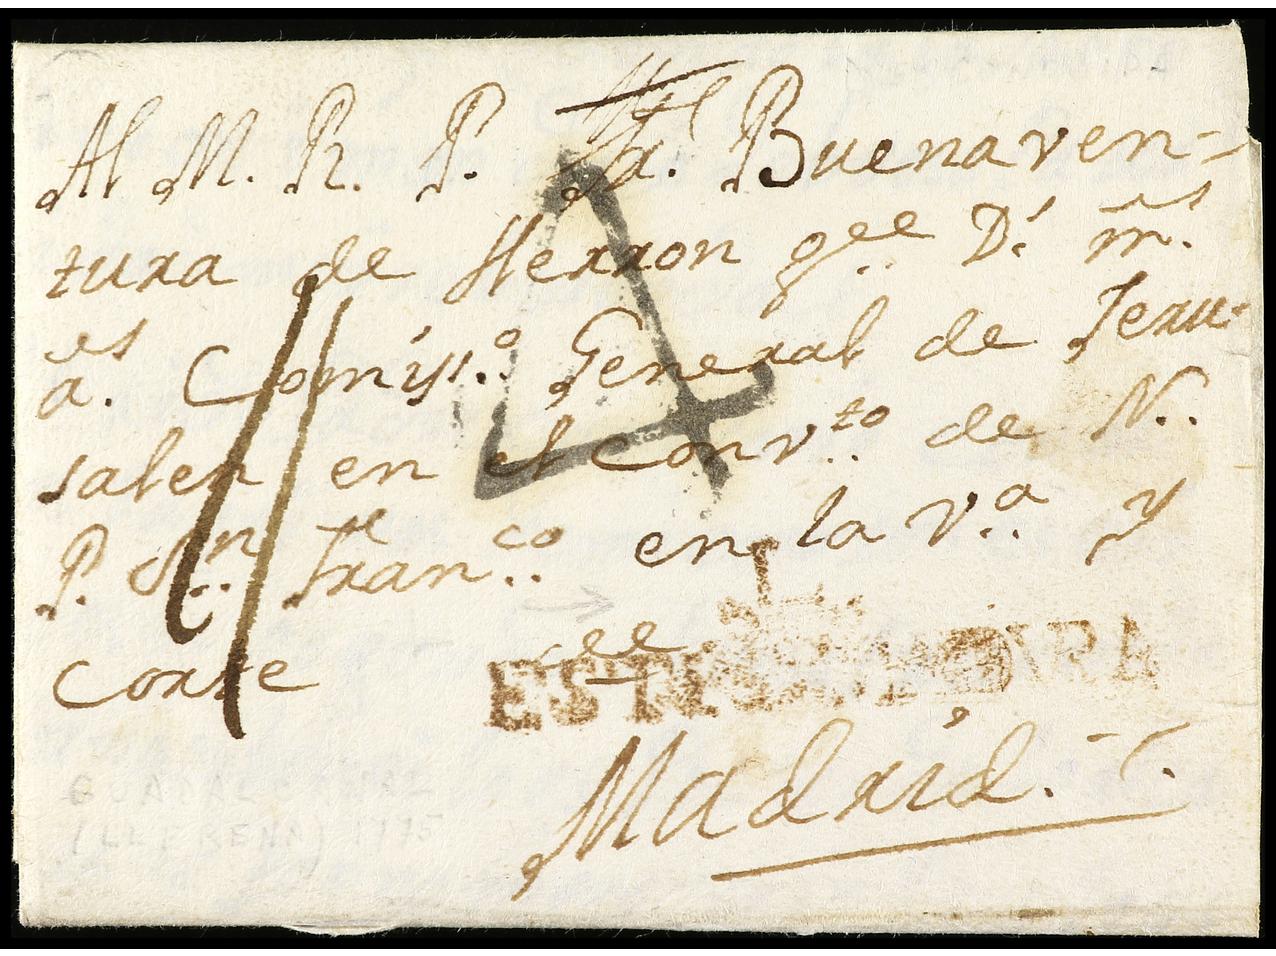 Al M. R. P. Buenaven-
tura de Herron qee Ds. ms. as
es
a. Comiso. General de Jeru-
salen en el convto. de N.
P. Sn. Franco. en la Va. y
Corte de
ESTREMADURA
Madrid.
4
GUADALCANAL
(LLERENA) 1775